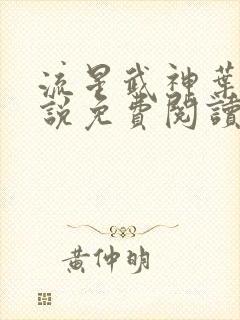 流星武神葉
說免費閱讀
黃仲明